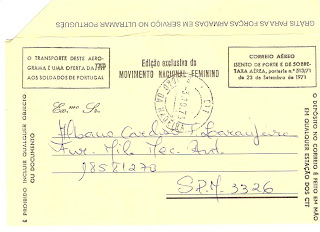 GRÁTIS PARA AS FORÇAS ARMADAS EM SERVIÇO NO ULTRAMAR PORTUGUÊS
O TRANSPORTE DESTE AERO-
GRAMA É UMA OFERTA DA TAP
AOS SOLDADOS DE PORTUGAL
Edição exclusiva do
MOVIMENTO NACIONAL FEMININO
CORREIO AÉREO
ISENTO DE PORTE E DE SOBRE-
TAXA AÉREA, portaria n.º
de 23 de Setembro de 1971
É PROIBIDO INCLUIR QUALQUER OBJECTO
OU DOCUMENTO
Ex.mo Sr.
Albano
Fur. Mil. Mec. Aut.
S.P.M. 3326
O DEPÓSITO NO CORREIO É FEITO EM MÃO
EM QUALQUER ESTAÇÃO DOS CTT